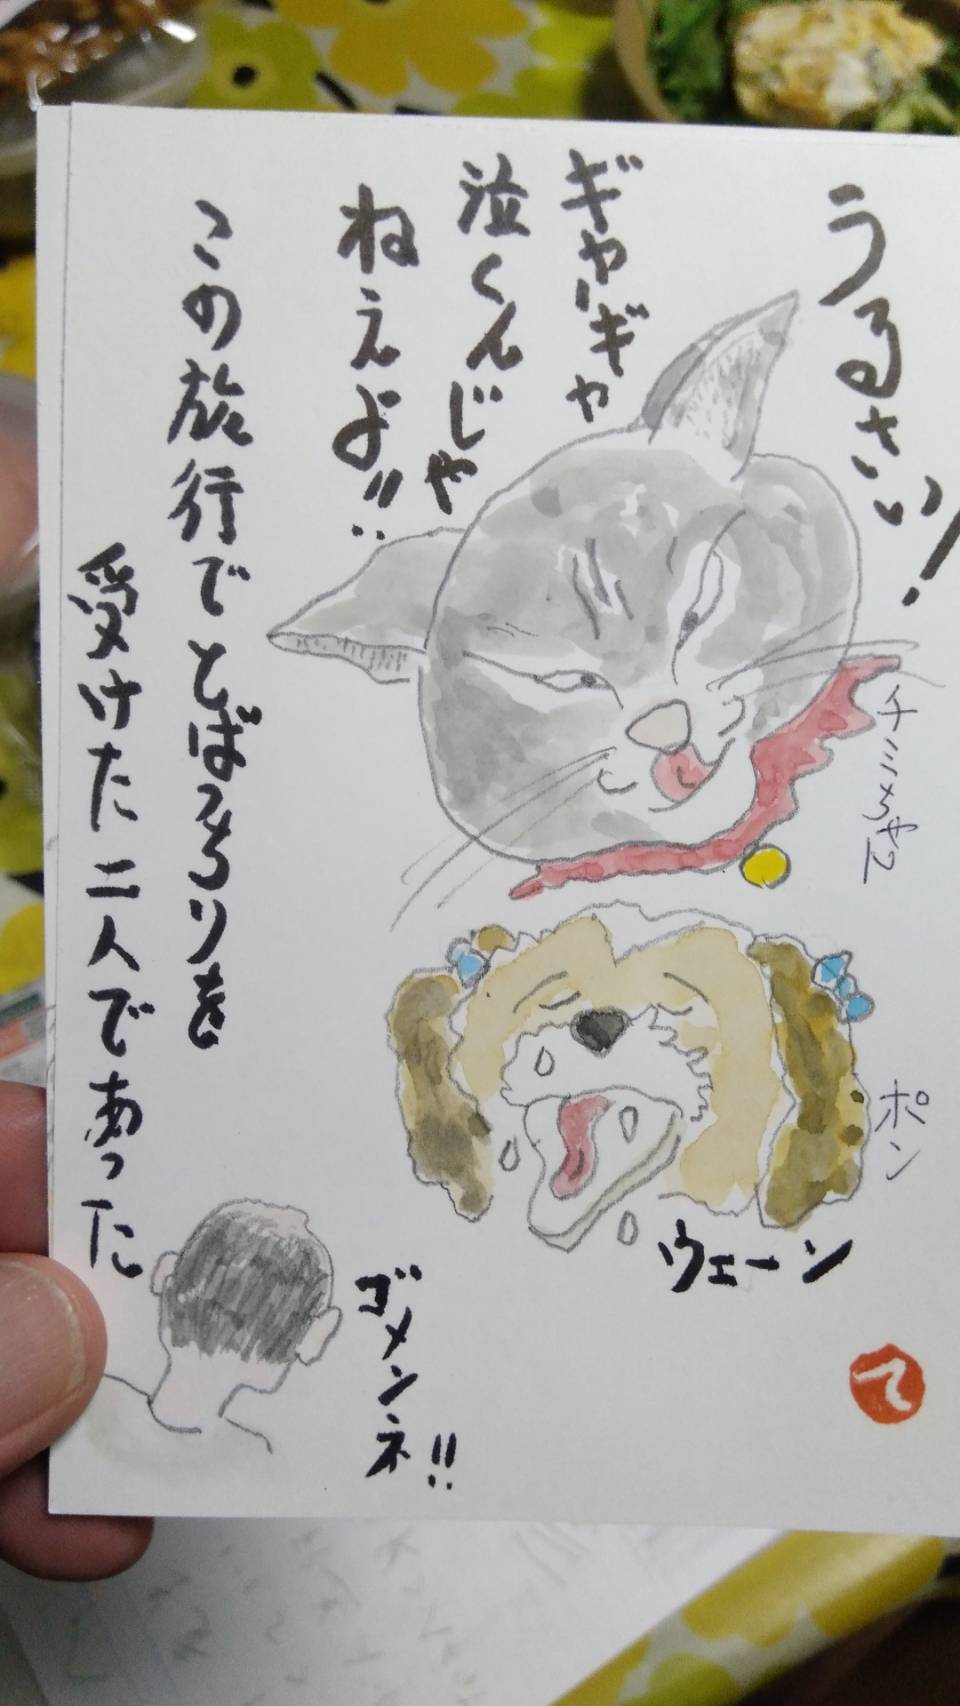 うるさい!
ギャーギャ
泣くんじゃ
ねえよ!!
チミちゃん
この旅行でとばっちりを
受けた二人であった
ポン
ウェーン
ゴメンネ!!
て